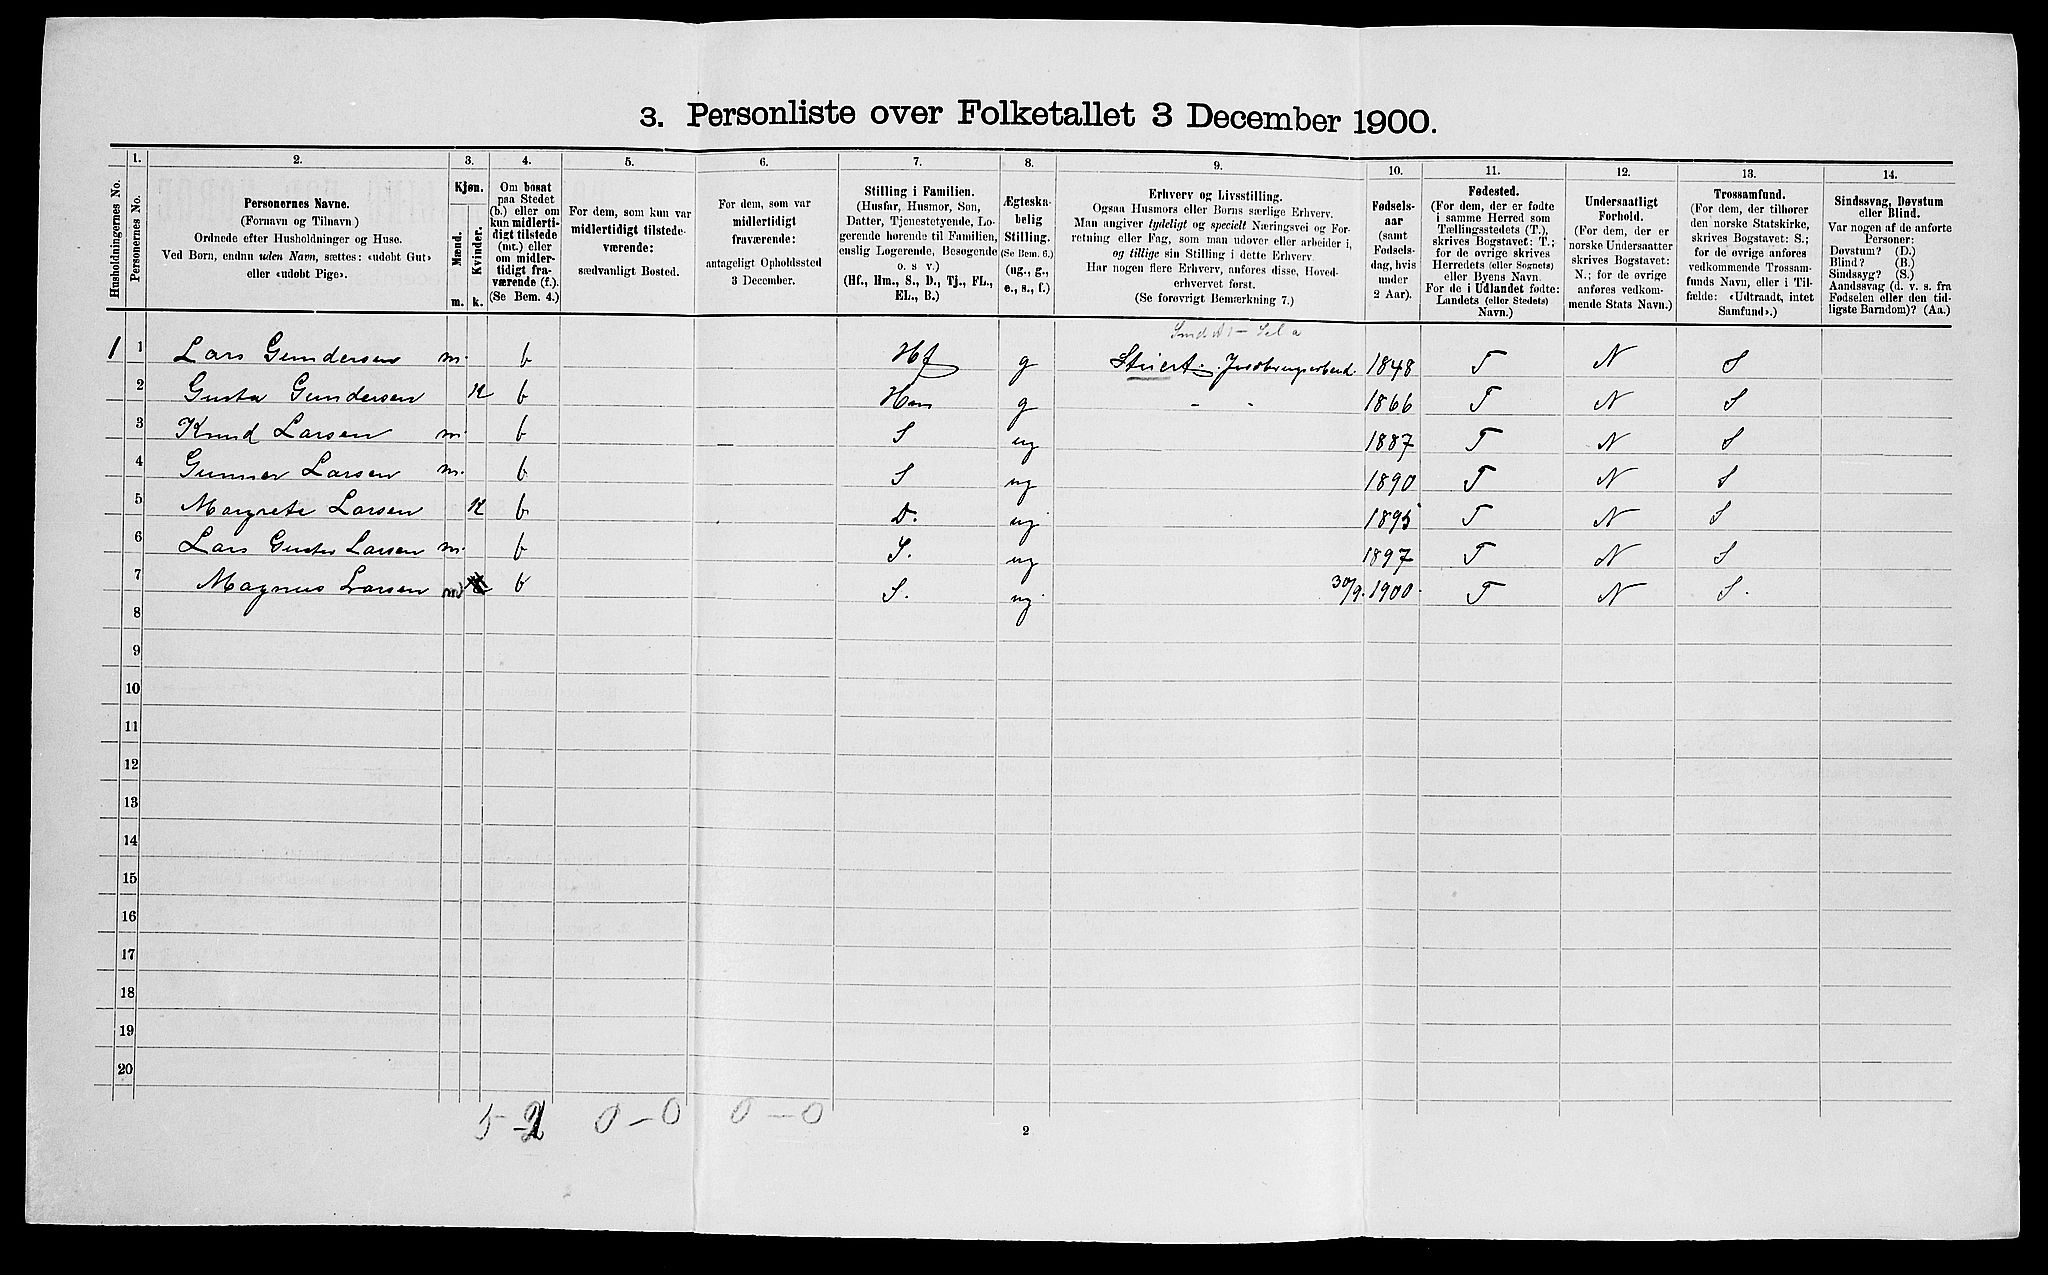 3. Personliste over Folketallet 3 December 1900.
Husholdningernes No.
1.
Personernes No.
2.
Personernes Navne.
(Fornavn og Tilnavn)
Ordnede efter Husholdninger og Huse.
Ved Børn, endnu uden Navn, sættes: «udøbt Gut»
eller «udøbt Pige».
3.
Kjøn.
Mænd.
Kvinder.
m. k.
4.
Om bosat
paa Stedet
(b.) eller om
kun midlerti-
digt tilstede
(mt.) eller
om midler-
tidigt fra-
værende (f.).
(Se Bem. 4.)
5.
For dem, som kun var
midlertidigt tilstede-
værende:
sædvanligt Bosted.
6.
For dem, som var
midlertidigt
fraværende:
antageligt Opholdssted
3 December.
7.
Stilling i Familien.
(Husfar, Husmor, Søn,
Datter, Tjenestetyende, Lo-
gerende hørende til Familien,
enslig Logerende, Besøgende
o. s v.)
(Hf., Hm., S., D., Tj., FL.,
EL., B.)
8.
Ægteska-
belig
Stilling.
(Se Bem. 6.)
(ug., g.,
e., s., f.)
9.
Erhverv og Livsstilling.
Ogsaa Husmors eller Børns særlige Erhverv.
Man angiver tydeligt og specielt Næringsvei og For-
retning eller Fag, som man udøver eller arbeider i,
og tillige sin Stilling i dette Erhverv.
Har nogen flere Erhverv, anføres disse, Hoved-
erhvervet først.
(Se forøvrigt Bemærkning 7.)
10.
Fødsels-
aar
(samt
Fødsels-
dag, hvis
under
2 Aar).
11.
Fødested.
(For dem, der er fødte
i samme Herred som
Tællingsstedets (T.),
skrives Bogstavet: T.;
for de øvrige skrives
Herredets (eller Sognets)
eller Byens Navn.
For de i Udlandet fødte:
Landets (eller Stedets)
Navn.)
12.
Undersaatligt
Forhold.
(For dem, der er
norske Undersaatter
skrives Bogstavet:
N.; for de øvrige
anføres vedkom-
mende Stats Navn.)
13.
Trossamfund.
(For dem, der tilhører
den norske Statskirke,
skrives Bogstavet: S.;
for de øvrige anføres
vedkommende Trossam-
funds Navn, eller i Til-
fælde: «Udtraadt, intet
Samfund».)
14.
Sindssvag, Døvstum
eller Blind.
Var nogen af de anførte
Personer:
Døvstum? (D.)
Blind? (B.)
Sindssyg? (S.)
Aandssvag (d. v. s. fra
Fødselen eller den tid-
ligste Barndom)? (Aa.)
1 1 Lars Gundersen m. b Hf g 1848 T N S
2 Gusta Gundersen K b Hm g - - 1866 T N S
3 Knud Larsen m. b S ug 1887 T N S
4 Gunner Larsen m. b S ug 1890 T N S
5 Margrete Larsen K b D. ug 1895 T N S
6 Lars Gustav Larsen m. b S. ug 1897 T N S
7 Magnus Larsen m b S. ug. 30/9. 1900. T N S.
8
9
10
11
12
13
14
15
16
17
18
19
20
5-2 0-0 0-0
2